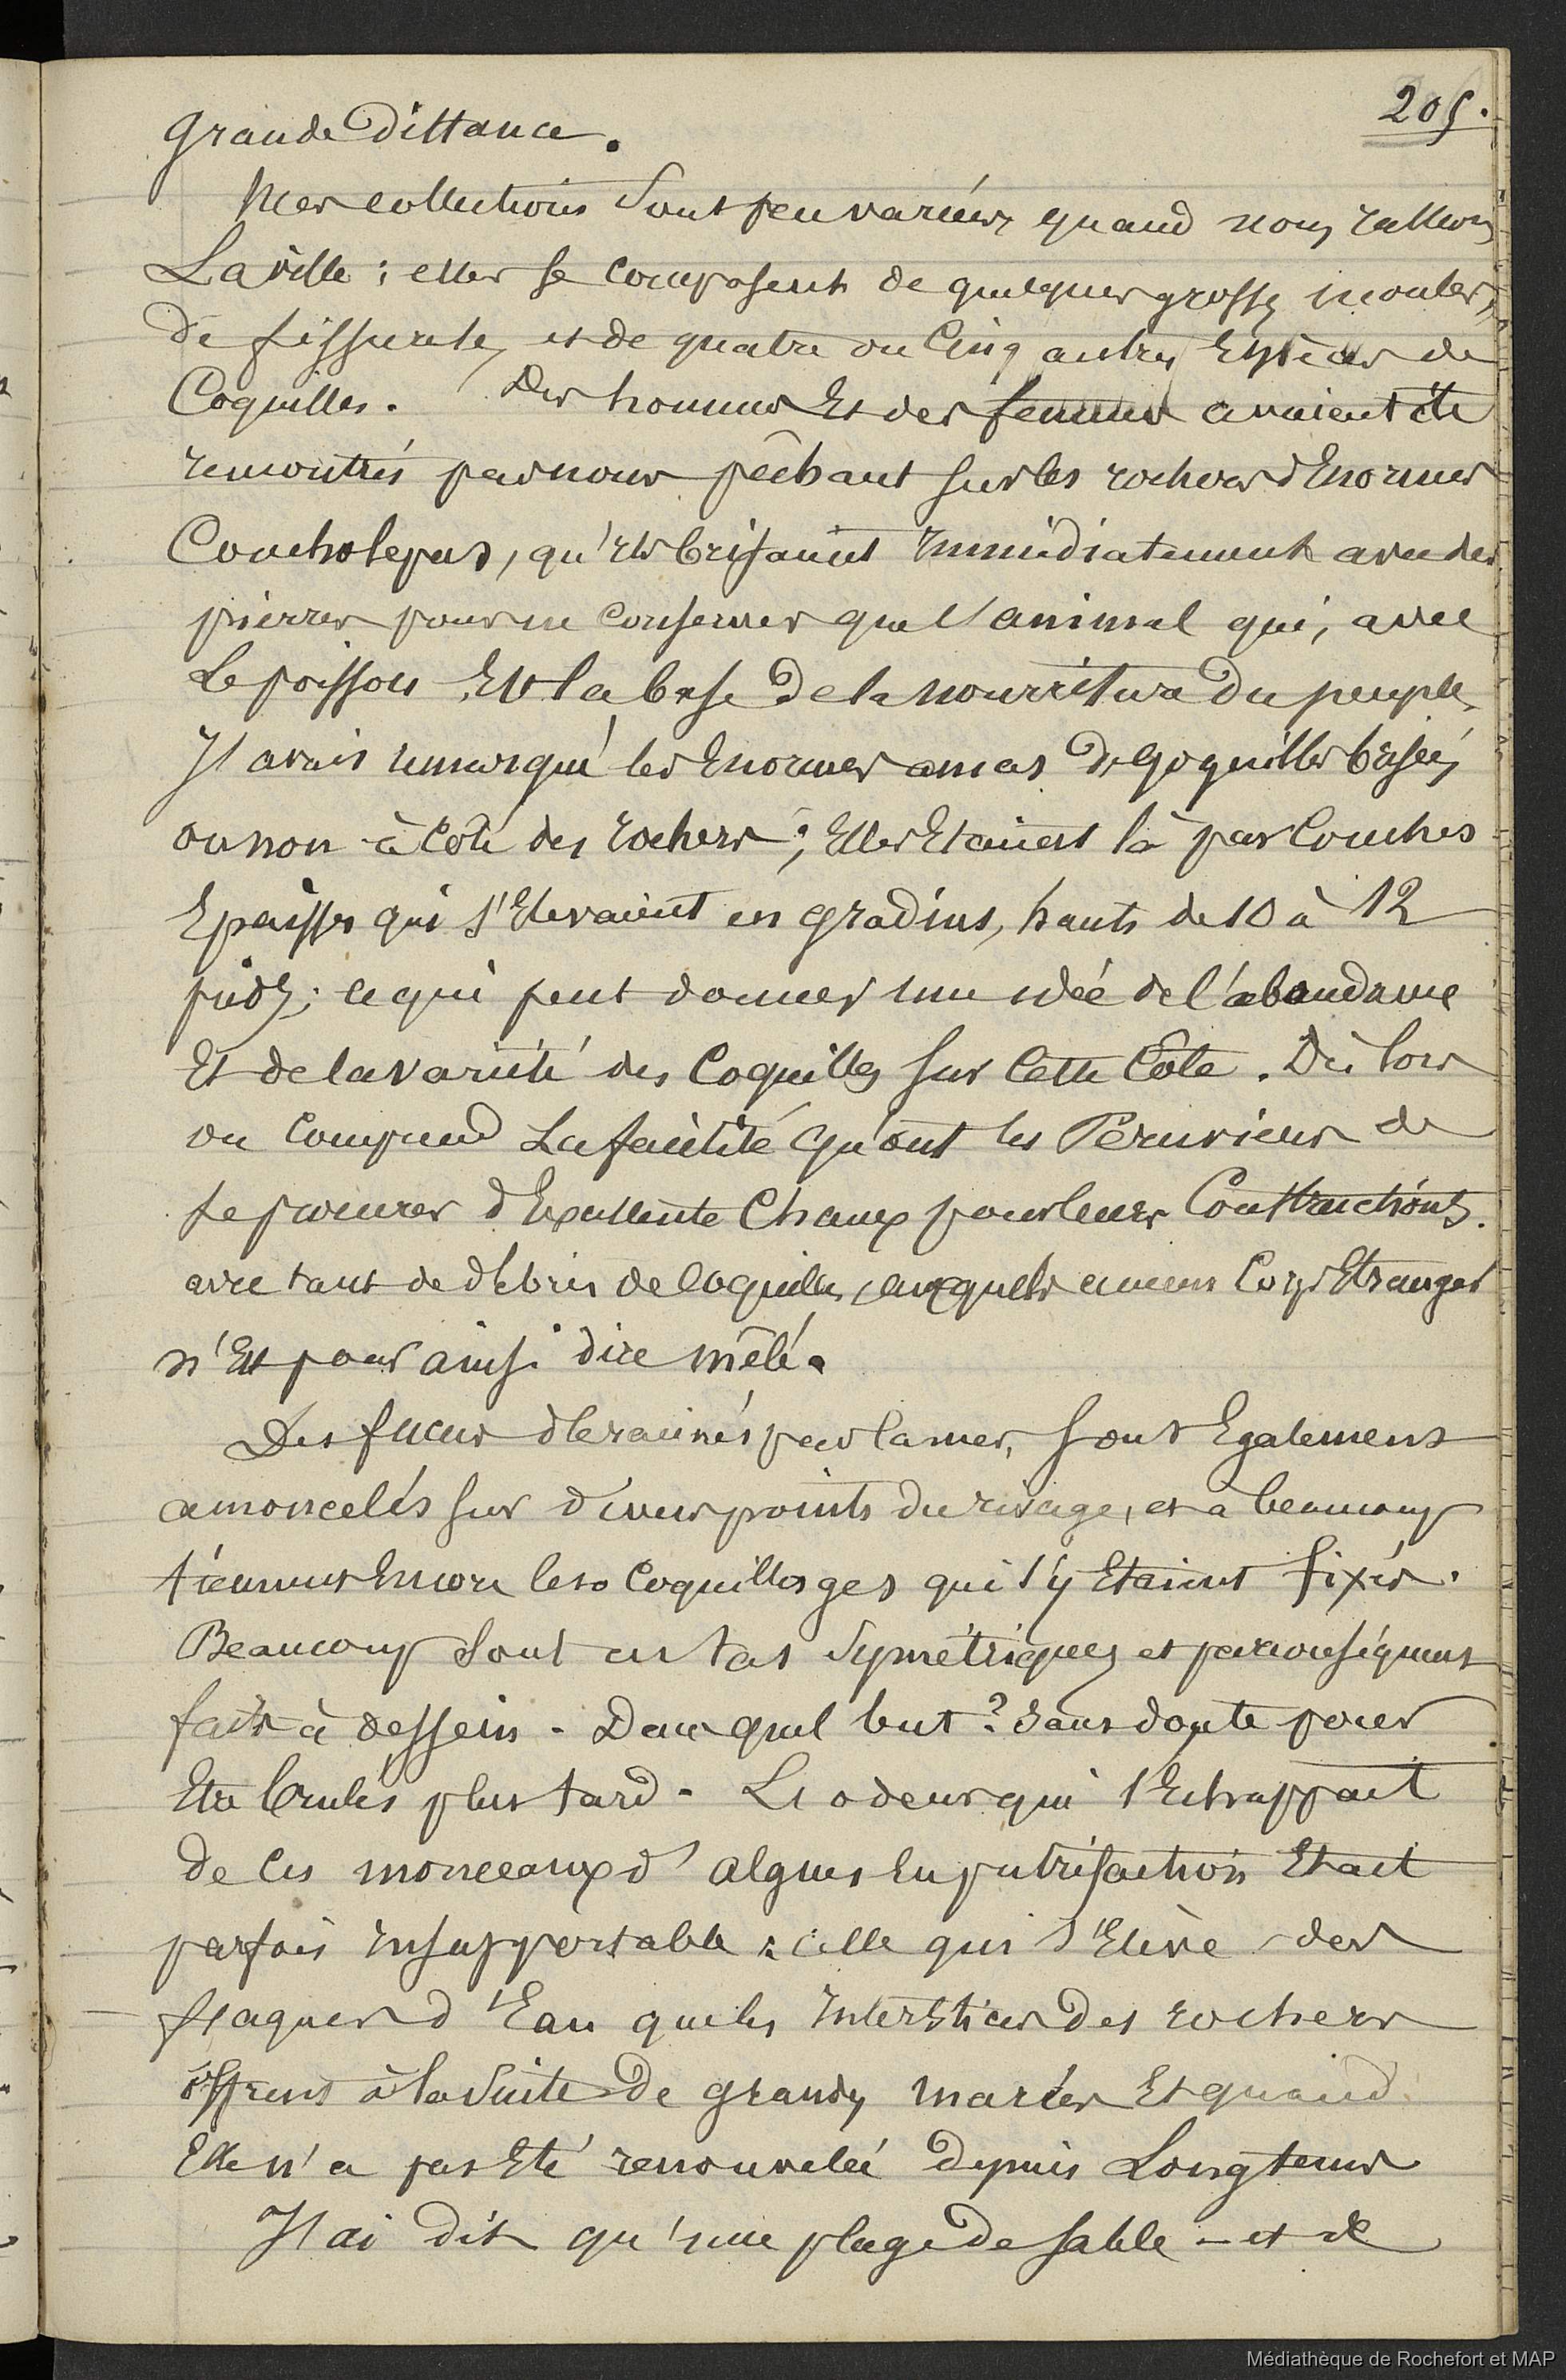 205.
grande distance.
Mes collections sont peu variées quand nous rallions
La ville ; elles se composent de quelques grosses moules,
de fissurelles, et de quatre ou Cinq autres Espèces de
Coquilles. Des hommes Et des femmes avaient été
rencontrés par nous pêchant sur les rochers d'Enormes
Concholepas, qu'ils brisaient Immédiatement avec des
pierres pour ne conserver que l'animal qui, avec
Le poisson Est la base de la nourriture du peuple.
J'avais remarqué les Enormes amas de Coquilles brisées
ou non à côté des rochers ; Elles Etaient là par Couches
Epaisses qui s'Elevaient en gradins, hauts de 10 à 12
pieds ; ce qui peut donner une idée de l'abondance
Et de la variété des Coquilles sur Cette Côte. Dès lors
on Comprend La facilité qu'ont les Péruviens de
se procurer d'Excellente Chaux pour leurs Constructions.
avec tant de débris de coquilles, auxquels aucun Corps Etranger
n'Est pour ainsi dire mêlé.
Des fucus déracinés par la mer, sont Egalement
amoncelés sur divers points du rivage, et à beaucoup
tiennent Encore les Coquillages qui s'y Etaient fixés.
Beaucoup sont en tas symétriques et par conséquent
faits à dessein. Dans quel but ? sans doute pour
Etre brulés plus tard. L'odeur qui s'Echappait
de Ces monceaux d'algues En putréfaction Etait
parfois Insupportable : celle qui s'Elève des
flaques d'Eau que les Interstices des rochers
offrent à la suite de grandes marées Et quand
Elle n'a pas Eté renouvelée depuis Longtems
J'ai dit qu'une plage de sable – et de
Médiathèque de Rochefort et MAP